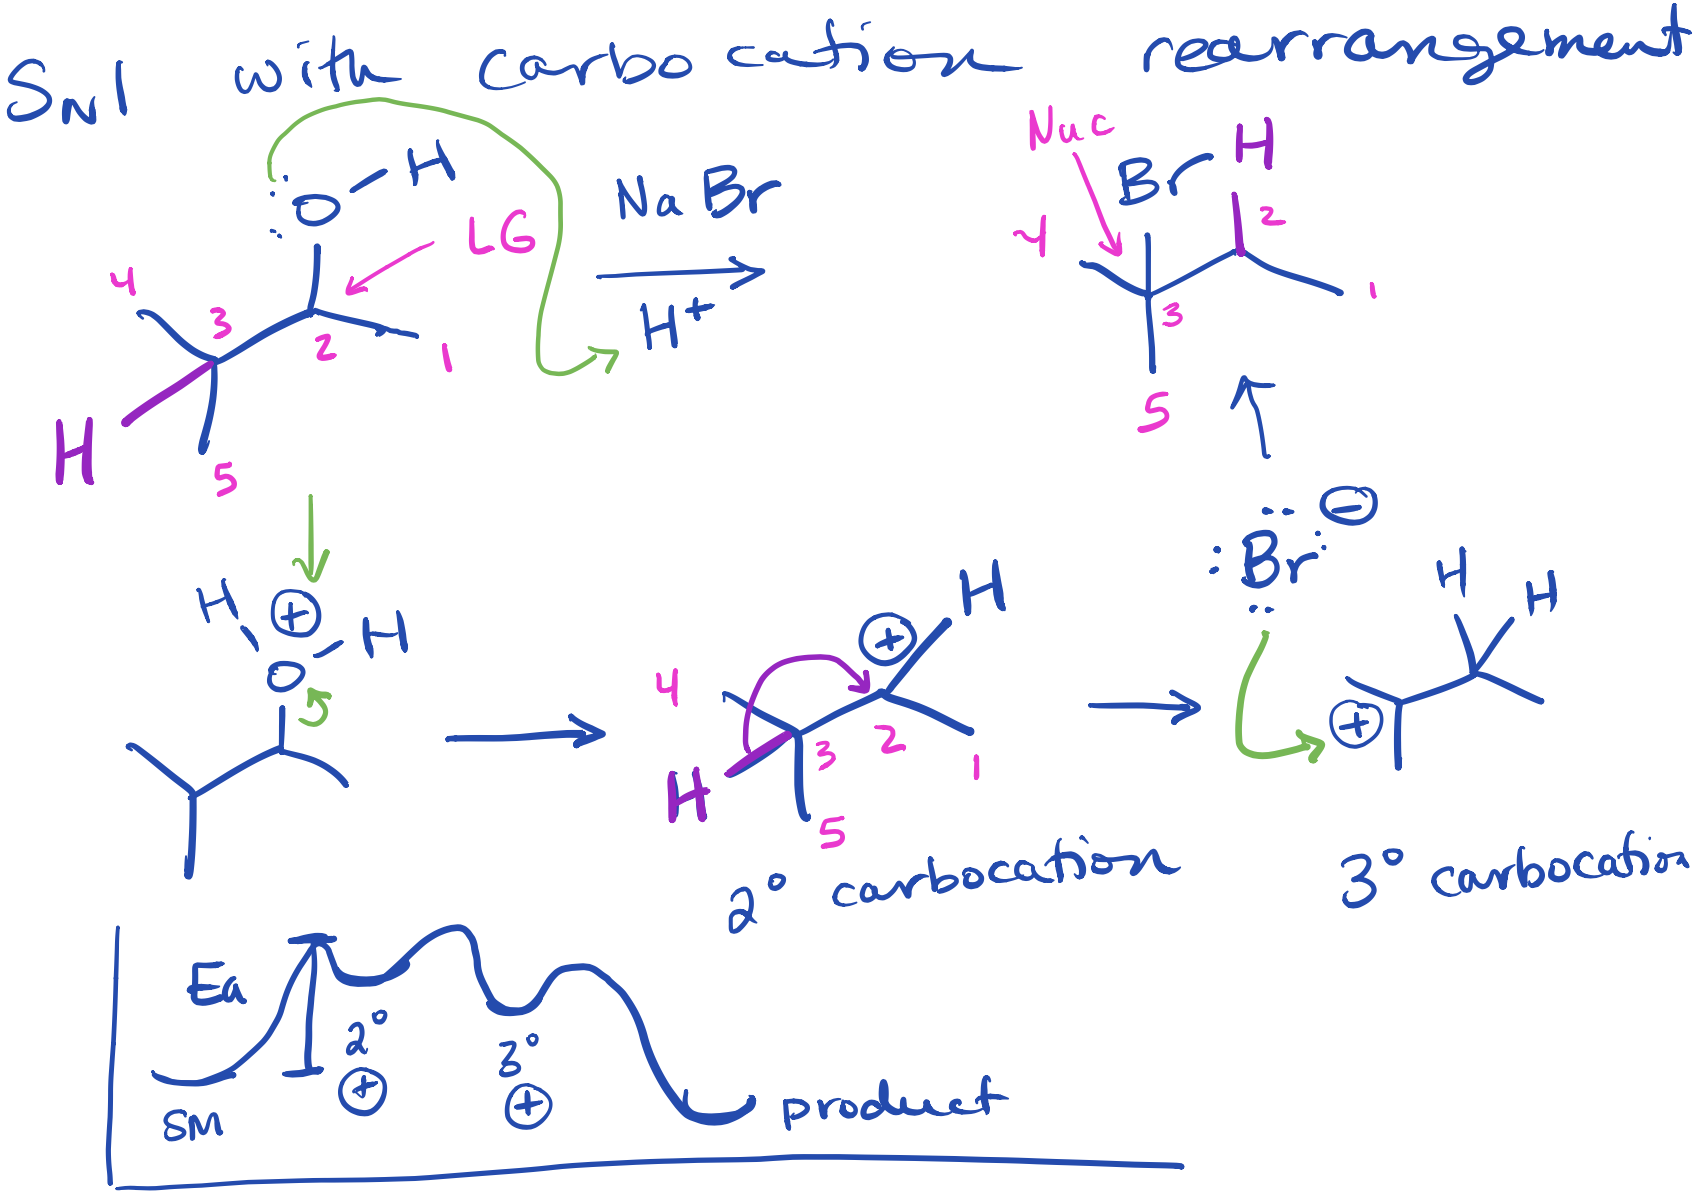 SN1 with carbocation rearrangement
Nuc
H
:O
H
LG
NaBr
H+
Br
H
4
3
2
1
H
5
4
2
3
1
5
H
+
H
O
4
H
3
2
1
5
+
H
2° carbocation
:Br: −
H
H
+
3° carbocation
Ea
SM
2°
+
3°
+
product